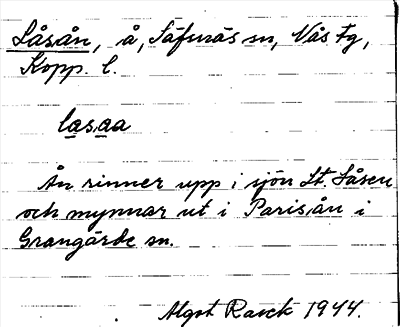 Låsån, å, Säfsnäs sn, Nås fg,
Kopp. l.
lasaa
Ån rinner upp i sjön St. Låsen
och mynnar ut i Parisån i
Grangärde sn.
Algot Rasck 1944.